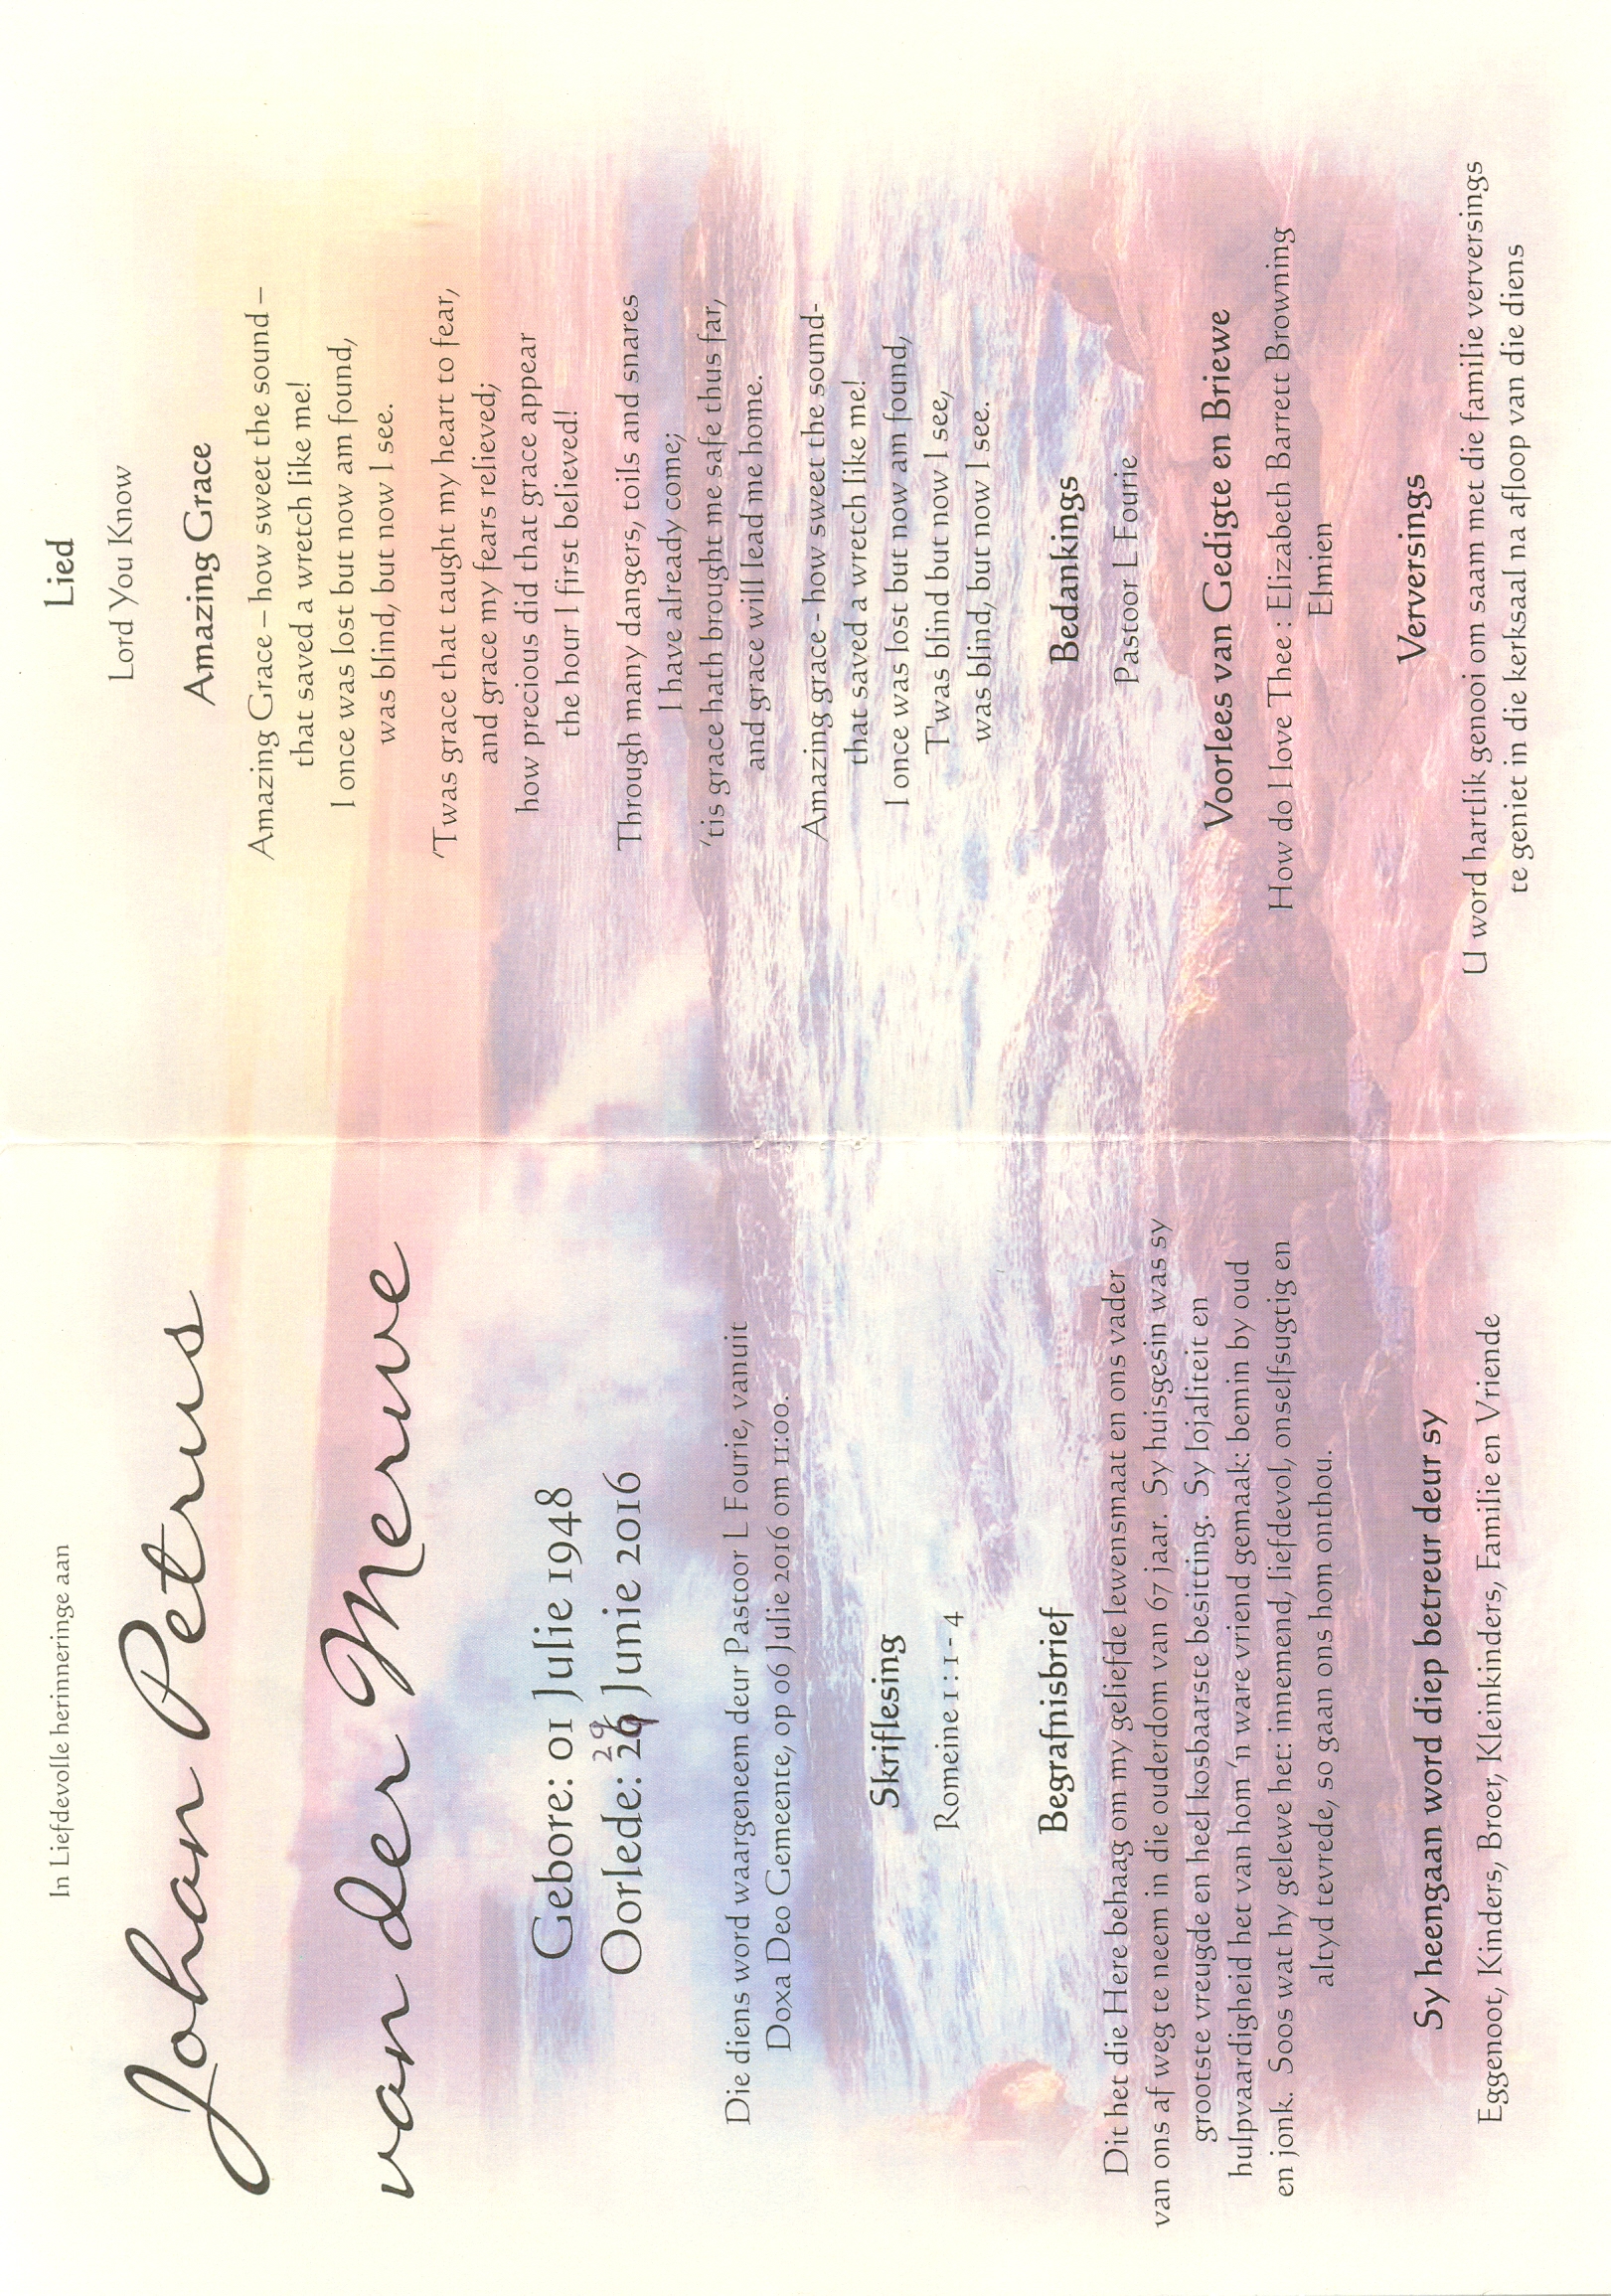 In Liefdevolle herinneringe aan
Johan Petrus
van der Merwe
Gebore: 01 Julie 1948
29
Oorlede: 26 Junie 2016
Die diens word waargeneem deur Pastoor L Fourie, vanuit
Doxa Deo Gemeente, op 06 Julie 2016 om 11:00.
Skriflesing
Romeine 1 : 1 - 4
Begrafnisbrief
Dit het die Here behaag om my geliefde lewensmaat en ons vader
van ons af weg te neem in die ouderdom van 67 jaar. Sy huisgesin was sy
grootste vreugde en heel kosbaarste besitting. Sy lojaliteit en
hulpvaardigheid het van hom 'n ware vriend gemaak: bemin by oud
en jonk. Soos wat hy gelewe het: innemend, liefdevol, onselfsugtig en
altyd tevrede, so gaan ons hom onthou.
Sy heengaan word diep betreur deur sy
Eggenoot, Kinders, Broer, Kleinkinders, Familie en Vriende
Lied
Lord You Know
Amazing Grace
Amazing Grace – how sweet the sound –
that saved a wretch like me!
I once was lost but now am found,
was blind, but now I see.
'Twas grace that taught my heart to fear,
and grace my fears relieved;
how precious did that grace appear
the hour I first believed!
Through many dangers, toils and snares
I have already come;
'tis grace hath brought me safe thus far,
and grace will lead me home.
Amazing grace - how sweet the sound-
that saved a wretch like me!
I once was lost but now am found,
T'was blind but now I see,
was blind, but now I see.
Bedankings
Pastoor L Fourie
Voorlees van Gedigte en Briewe
How do I love Thee : Elizabeth Barrett Browning
Elmien
Verversings
U word hartlik genooi om saam met die familie verversings
te geniet in die kerksaal na afloop van die diens